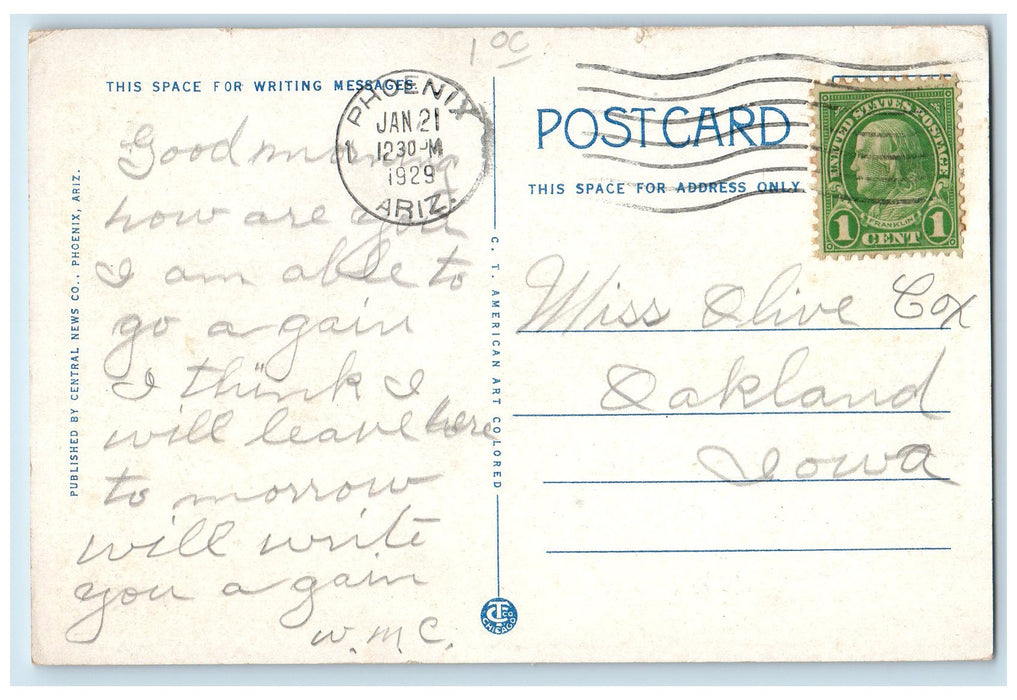 1 00
THIS SPACE FOR WRITING MESSAGES.
PHOENIX
JAN 21
1230 PM
1929
ARIZ.
1
POSTCARD
THIS SPACE FOR ADDRESS ONLY.
UNITED STATES POSTAGE
FRANKLIN
1 CENT 1
Good morning
how are you
I am able to
go a gain
I think I
will leave here
to morrow
will write
you a gain
W.M.C.
Miss Olive Cox
Oakland
Iowa
PUBLISHED BY CENTRAL NEWS CO., PHOENIX, ARIZ.
C. T. AMERICAN ART COLORED
CT CO
CHICAGO